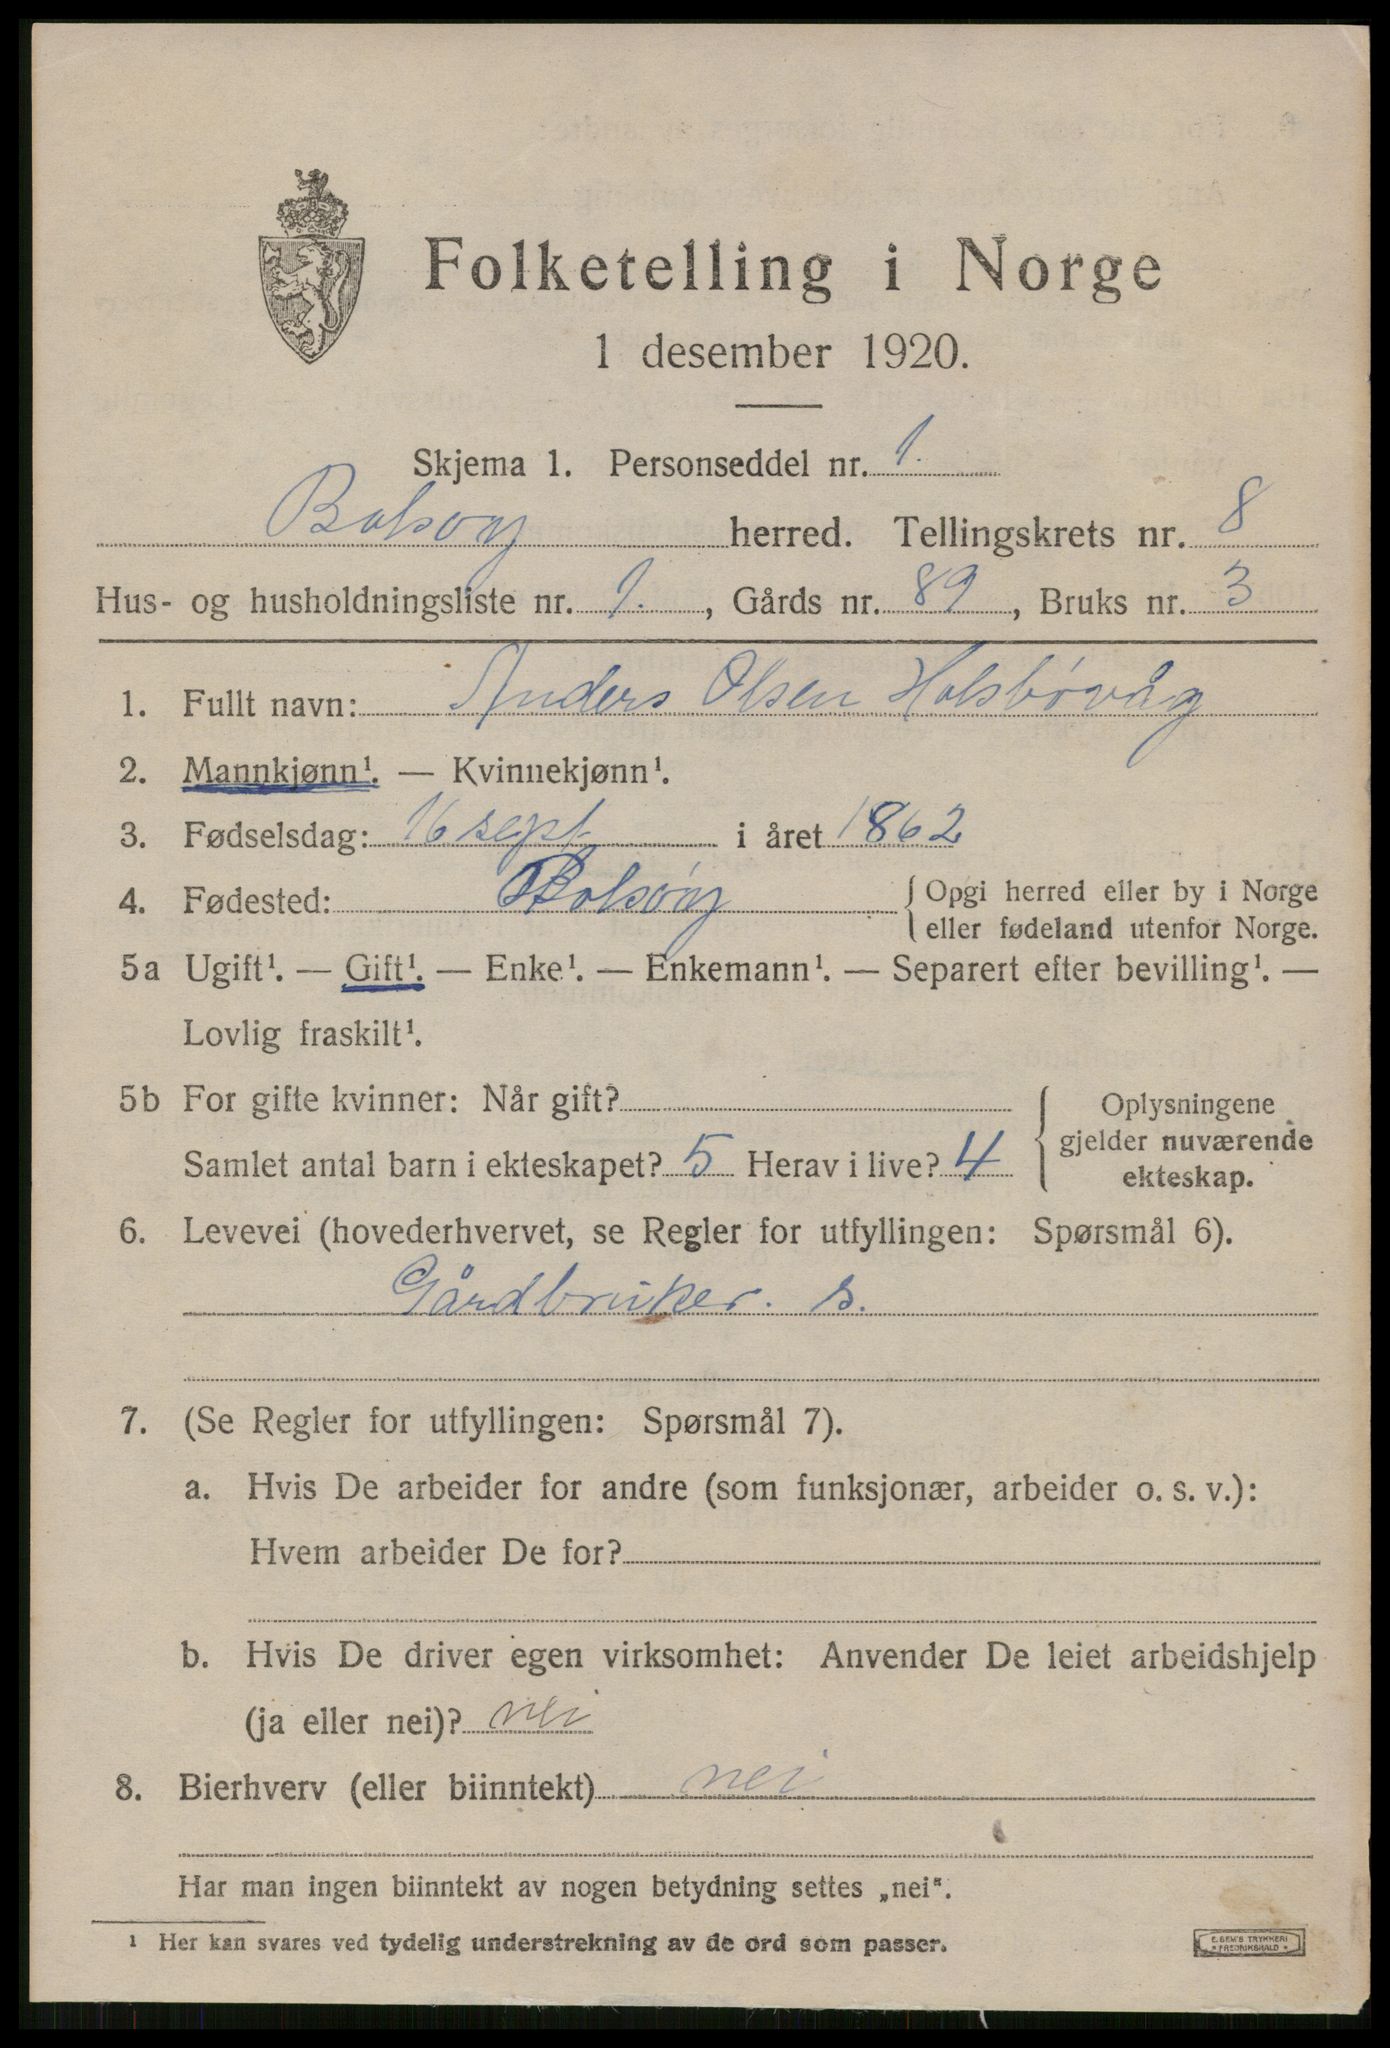 Folketelling i Norge
1 desember 1920.
Skjema 1. Personseddel nr. 1.
Bolsøy herred. Tellingskrets nr. 8
Hus- og husholdningsliste nr. 1., Gårds nr. 89, Bruks nr. 3
1. Fullt navn: Anders Olsen Holsbøvåg
2. Mannkjønn¹. — Kvinnekjønn¹.
3. Fødselsdag: 16 sept. i året 1862
4. Fødested: Bolsøy { Opgi herred eller by i Norge
eller fødeland utenfor Norge.
5a Ugift¹. — Gift¹. — Enke¹. — Enkemann¹. — Separert efter bevilling¹. —
Lovlig fraskilt¹.
5b For gifte kvinner: Når gift?
Samlet antal barn i ekteskapet? 5 Herav i live? 4
Oplysningene
gjelder nuværende
ekteskap.
6. Levevei (hovederhvervet, se Regler for utfyllingen: Spørsmål 6).
Gårdbruker. s.
7. (Se Regler for utfyllingen: Spørsmål 7).
a. Hvis De arbeider for andre (som funksjonær, arbeider o. s. v.):
Hvem arbeider De for?
b. Hvis De driver egen virksomhet: Anvender De leiet arbeidshjelp
(ja eller nei)? nei
8. Bierhverv (eller biinntekt) nei
Har man ingen biinntekt av nogen betydning settes „nei".
¹ Her kan svares ved tydelig understrekning av de ord som passer.
E. SEM'S TRYKKERI
* FREDRIKSHALD *